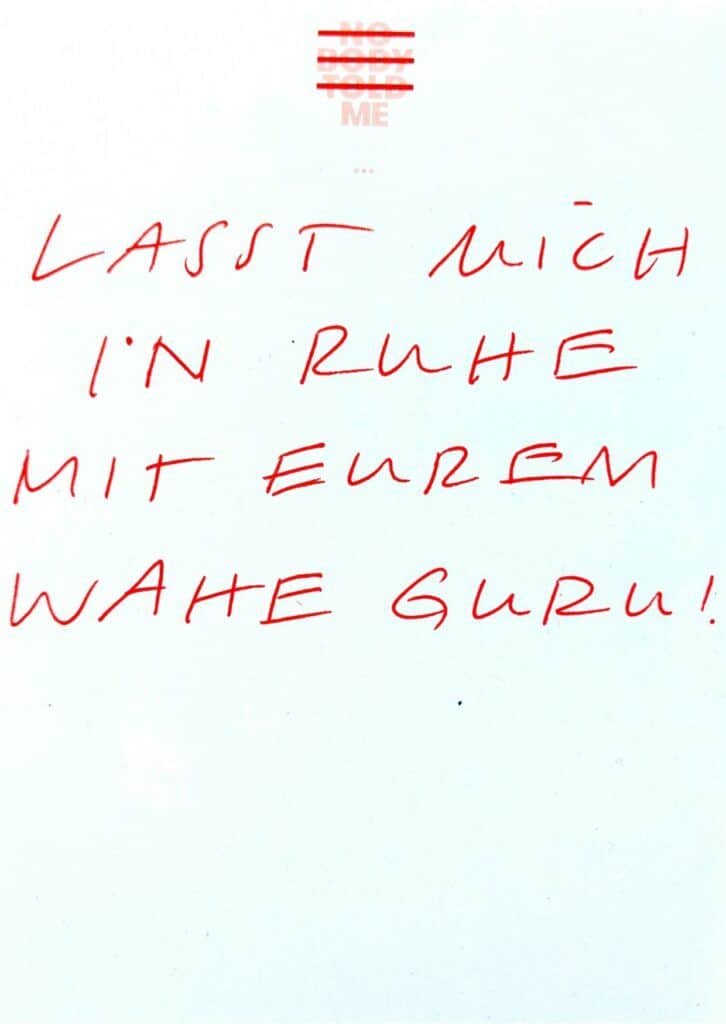 NO
BODY
TOLD
ME
...
LASST MICH
IN RUHE
MIT EUREM
WAHE GURU!